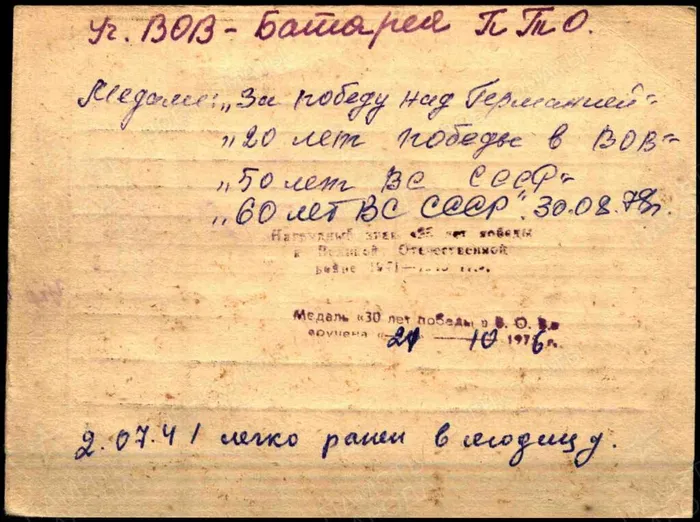 Уч. ВОВ - Батарея ПТО.
Медали: „За победу над Германией"
„20 лет победы в ВОВ"
„50 лет ВС СССР"
„60 лет ВС СССР". 30.08.78г.
Нагрудный знак «25 лет победы
в Великой Отечественной
войне
Медаль «30 лет победы в В. О. В.»
вручена « 10 1976 г.
2.07.41 легко ранен в ягодицу.